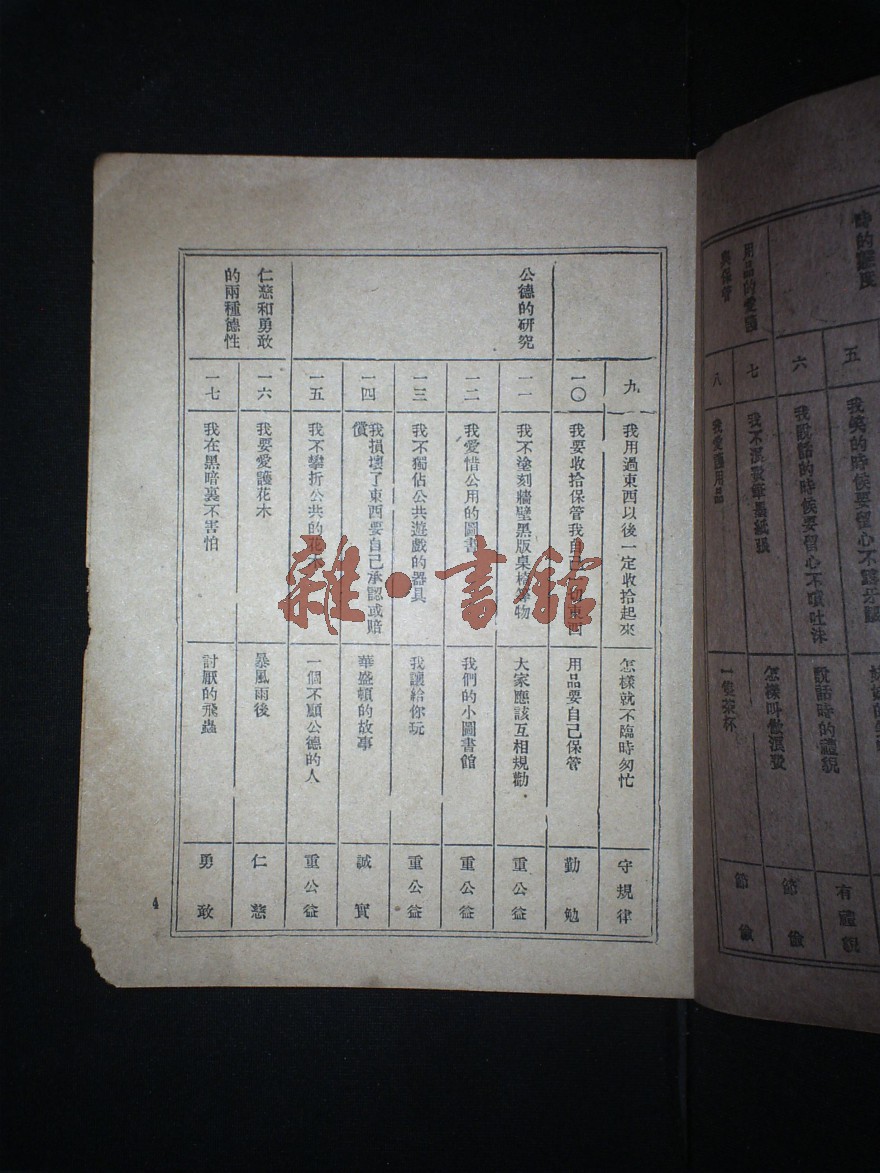 時的態度
五
我笑的時候要留心不露牙齦
六
我說話的時候要留心不噴吐沫
說話時的禮貌
有禮貌
用品的愛護
與保管
七
我不浪費筆墨紙張
怎樣叫做浪費
節儉
八
我愛護用品
一隻茶杯
節儉
九
我用過東西以後一定收拾起來
怎樣就不臨時匆忙
守規律
一〇
我要收拾保管我自己
東西
用品要自己保管
勤勉
公德的研究
一一
我不塗刻牆壁黑版桌椅等物
大家應該互相規勸
重公益
一二
我愛惜公用的圖書
我們的小圖書館
重公益
一三
我不獨佔公共遊戲的器具
我讓給你玩
重公益
一四
我損壞了東西要自己承認或賠
償
華盛頓的故事
誠實
一五
我不攀折公共的花木
一個不顧公德的人
重公益
仁慈和勇敢
的兩種德性
一六
我要愛護花木
暴風雨後
仁慈
一七
我在黑暗裏不害怕
討厭的飛蟲
勇敢
4
雜·書館